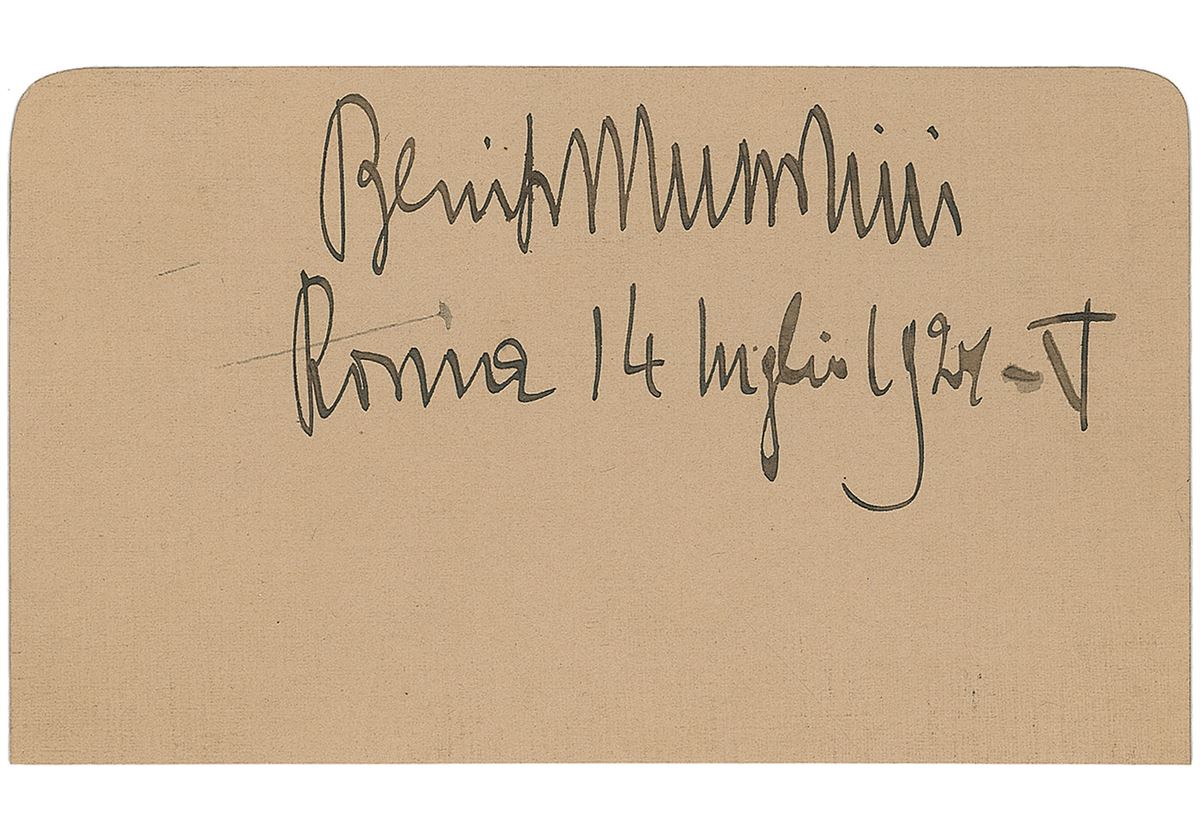 Benito Mussolini
Roma 14 luglio 1927 - V